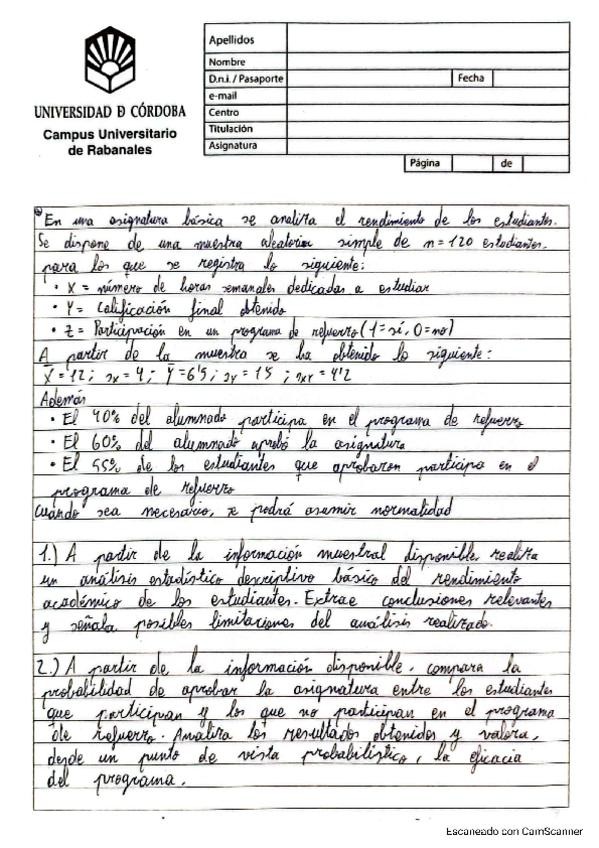 UNIVERSIDAD Ð CÓRDOBA
Campus Universitario
de Rabanales
Apellidos
Nombre
D.n.i. / Pasaporte
Fecha
e-mail
Centro
Titulación
Asignatura
Página de
En una asignatura básica se analiza el rendimiento de los estudiantes.
Se dispone de una muestra aleatoria simple de n=120 estudiantes.
para los que se registra lo siguiente:
· X = número de horas semanales dedicadas a estudiar
· Y = Calificación final obtenida
· Z = Participación en un programa de refuerzo (1=sí, 0=no)
A partir de la muestra se ha obtenido lo siguiente:
X̄ = 12; sx = 4; Ȳ = 6'5; sy = 1'5; sxy = 4'2
Además
· El 40% del alumnado participa en el programa de refuerzo
· El 60% del alumnado aprobó la asignatura
· El 55% de los estudiantes que aprobaron participa en el
programa de refuerzo
Cuando sea necesario, se podrá asumir normalidad
1.) A partir de la información muestral disponible, realiza
un análisis estadístico descriptivo básico del rendimiento
académico de los estudiantes. Extrae conclusiones relevantes
y señala posibles limitaciones del análisis realizado.
2.) A partir de la información disponible, compara la
probabilidad de aprobar la asignatura entre los estudiantes
que participan y los que no participan en el programa
de refuerzo. Analiza los resultados obtenidos y valora,
desde un punto de vista probabilístico, la eficacia
del programa.
Escaneado con CamScanner